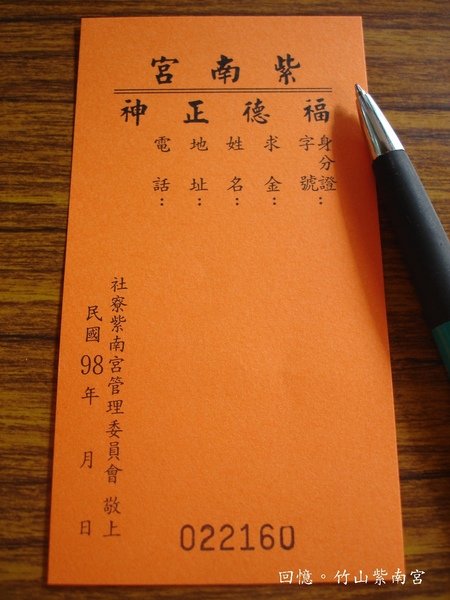 紫南宮
福德正神
身分證
字號：
求金：
姓名：
地址：
電話：
社寮紫南宮管理委員會 敬上
民國98年 月 日
022160
回憶。竹山紫南宮